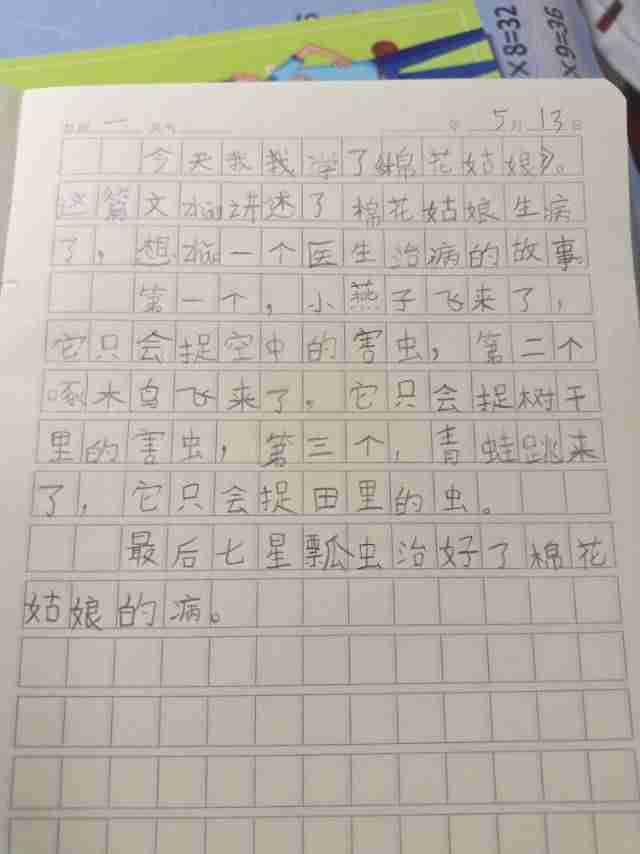 × 8=32
× 9=36
一
5月13日
今天我我学了《棉花姑娘》。
这篇文zhāng讲述了棉花姑娘生病
了，想zhǎo一个医生治病的故事
第一个，小燕子飞来了，
它只会捉空中的害虫，第二个
啄木鸟飞来了。它只会捉树干
里的害虫，第三个，青蛙跳来
了，它只会捉田里的虫。
最后七星瓢虫治好了棉花
姑娘的病。